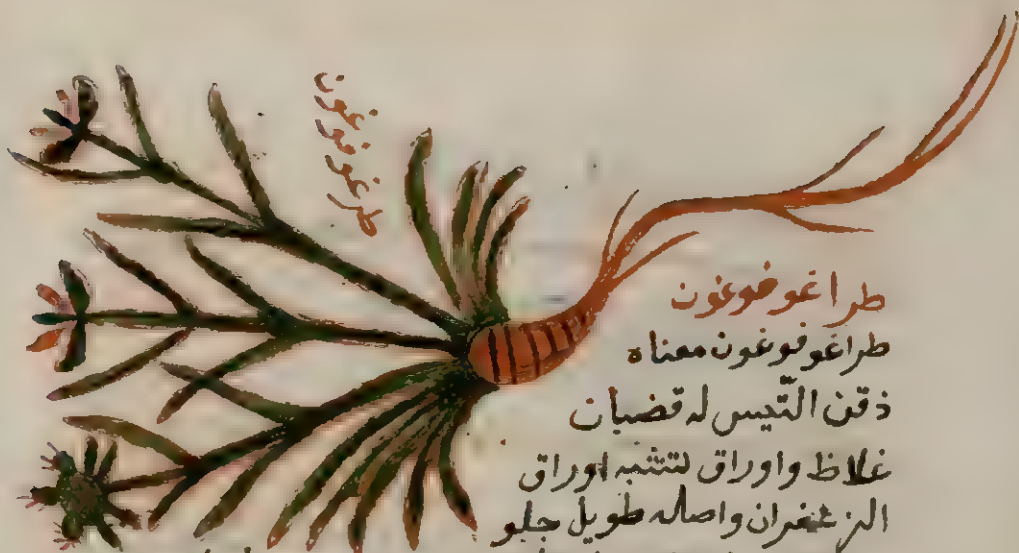 طرغوفوغون
طراغوفوغون
طراغوفوغون معناه
ذقن التّيس له قضبان
غلاظ واوراق تتشبه اوراق
الزعفران واصله طويل حلو